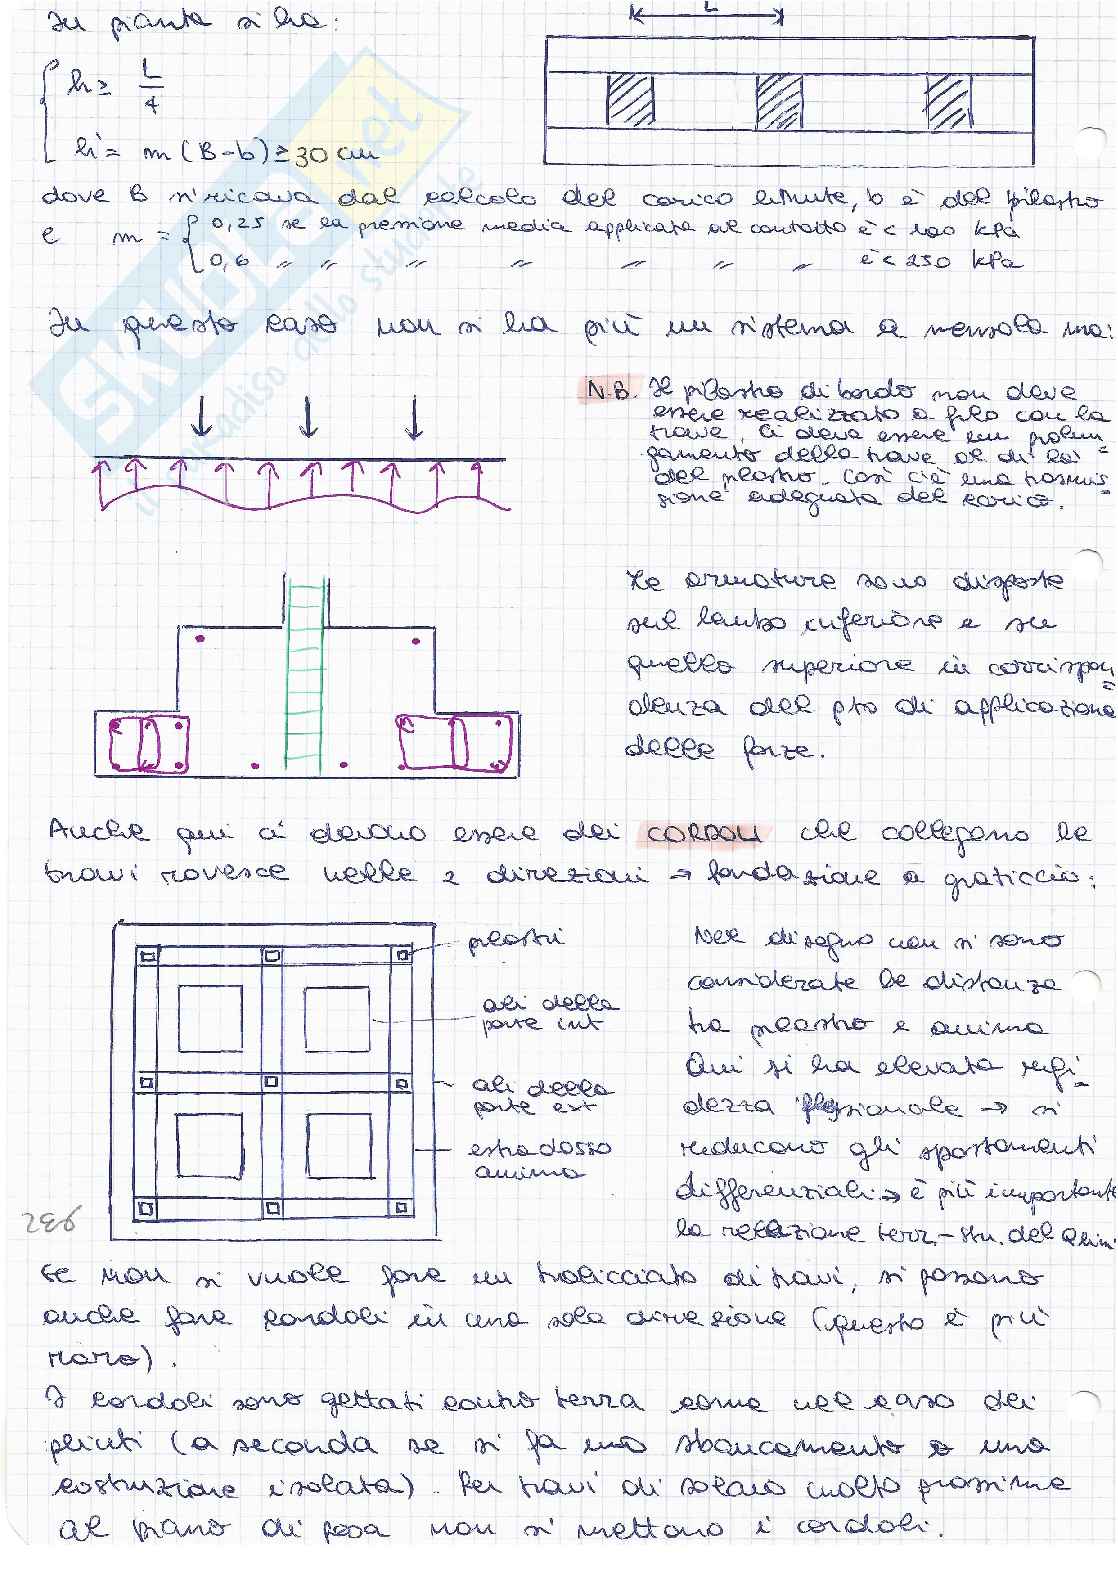 In pianta si ha:
L
h ≥ L/4
h' = m (B-b) ≥ 30 cm
dove B si ricava dal calcolo del carico limite, b è del pilastro
e m = 0,25 se la pressione media applicata al contatto è < 100 kPa
0,6 " " " " " " " è < 250 kPa
In questo caso non si ha più un sistema a mensola ma:
N.B. Il pilastro di bordo non deve
essere realizzato a filo con la
trave. Ci deve essere un prolun=
gamento della trave al di là
del pilastro. Così c'è una trasmis=
sione adeguata del carico.
Le armature sono disposte
sul lembo inferiore e su
quello superiore in corrispon=
denza del pto di applicazione
delle forze.
Anche qui ci devono essere dei CORDOLI che collegano le
travi rovesce nelle 2 direzioni → fondazione a graticcio:
pilastri
ali della
parte int
ali della
parte est
estradosso
anima
Nel disegno non si sono
considerate le distanze
tra pilastro e anima
Qui si ha elevata rigi=
dezza flessionale → si
riducono gli spostamenti
differenziali → è più importante
la relazione terr.-str. del
Se non si vuole fare un tralicciato di travi, si possono
anche fare cordoli in una sola direzione (questo è più
raro).
I cordoli sono gettati contro terra come nel caso dei
plinti (a seconda se si fa uno sbancamento o una
costruzione isolata). Per travi di solaio molto prossime
al piano di posa non si mettono i cordoli.
SKUOLA.net